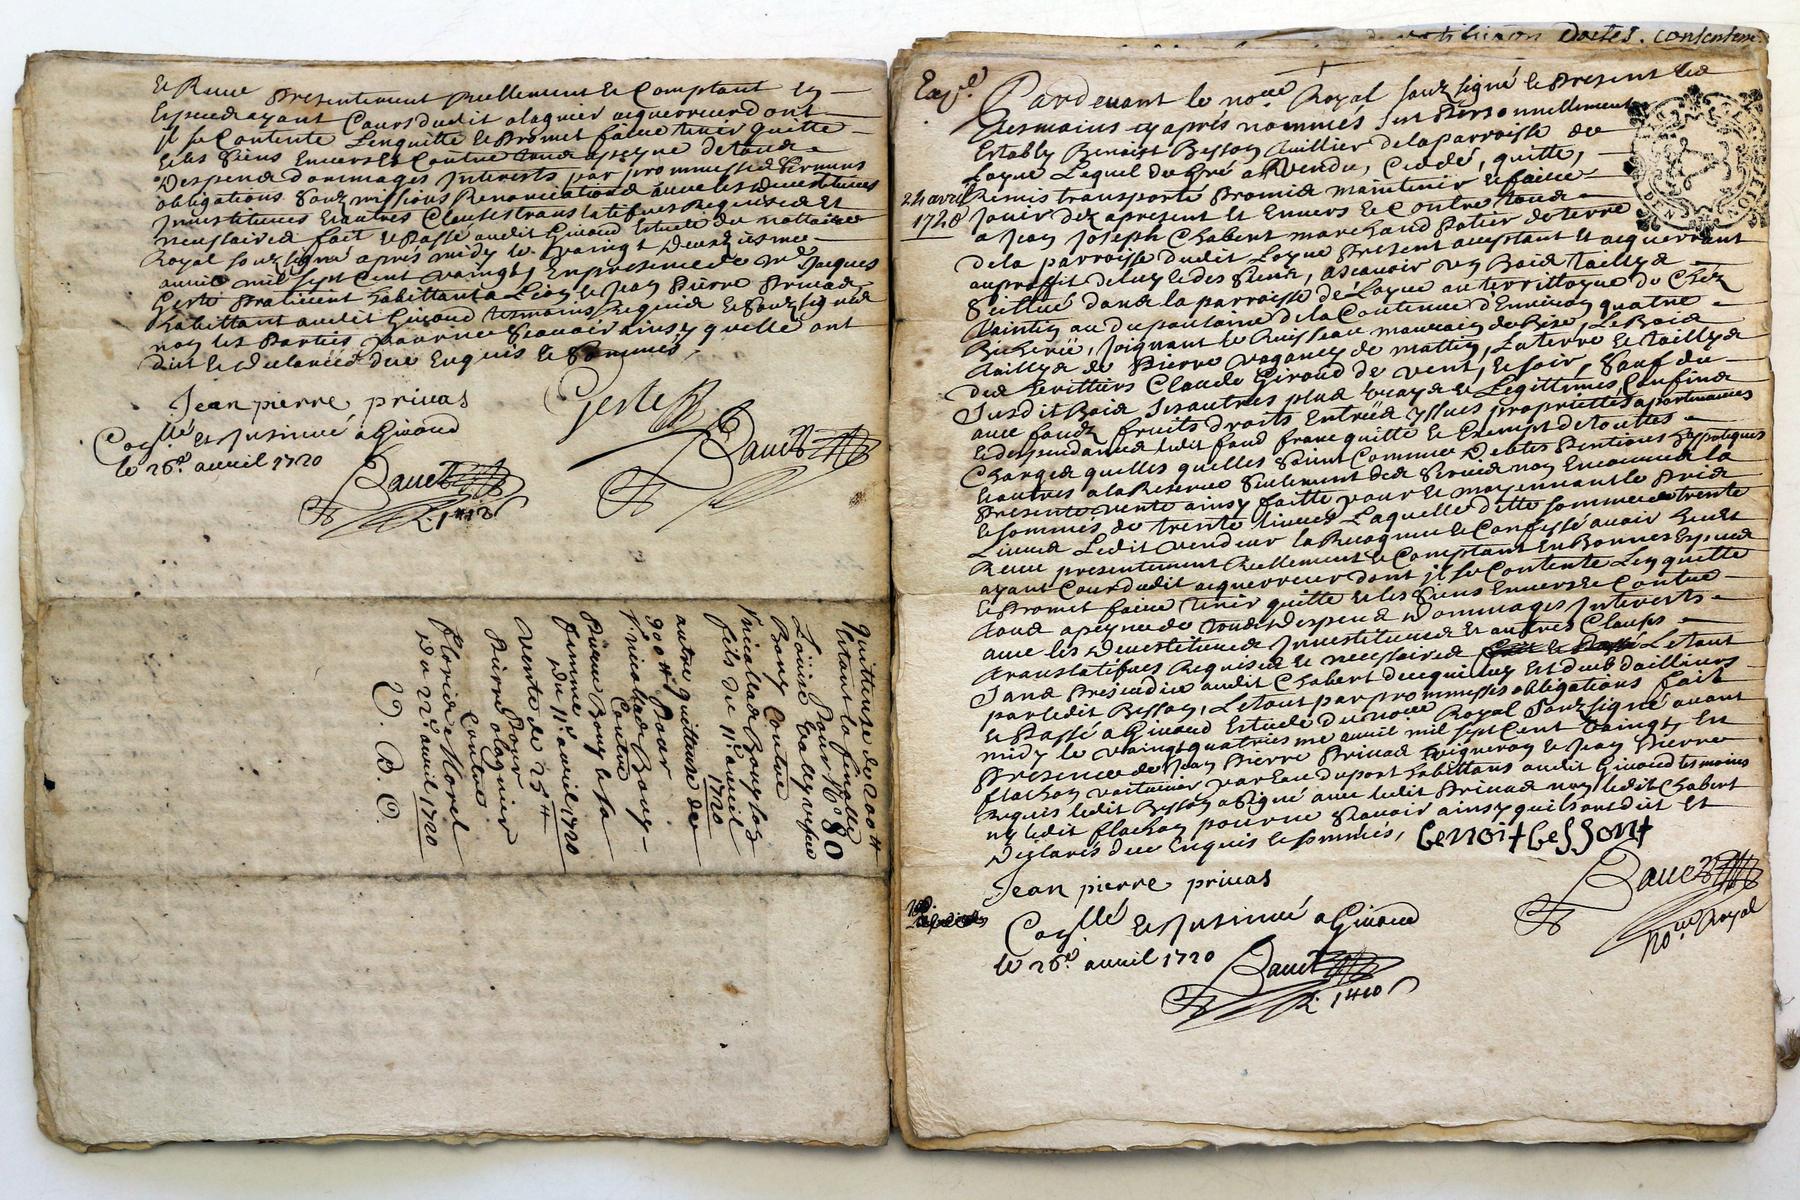 et Reçue presentement Reellement et Comptant en
Especes ayant Cours dudit olagnier acquerreur dont
il se Contente L'enquitte et Promet faire tenir quitte
et les siens Envers et Contre tous a peyne de tous
Despens Dommages Interests par prommesses sermens
obligations soumissions Renonciations avec les devestitures
Investitures et autres Clauses translatifves Requises et
necessaires fait et Passé audit Givord Estude du nottaire
Royal souzsigné apres midy le vaingt deuxiesme
avril mil sept Cent vaingt, En presence de Me Jacques
Geste Praticien habittant a Lion et Jean Pierre Privas
habittant audit Givord tesmoins Requis et souzsignés
non les Parties pour ne sçavoir ainsy quelle ont
dit et declarés de ce Enquis et sommés,
Jean pierre privas
Geste
Bauet
Coñllé et Insinué a Givord
le 26e avril 1720
Bauet
Quittance de 200 ll
Pour
Louise
Bony Contre
fils du 11e avril
1720
autre quittance de
900 ll Pour
Contre
Pierre Bony et sa
femme
du 11e avril 1720
Vente de 25 ll
Pour
Pierre olagnier
Contre
Floris Morel
Du 22e avril 1720
80
Expé
24 avril
1720
Pardevant le nore Royal souzsigné et Present les
tesmoins cy aprés nommés fut Personnellement
Estably Benoist Besson tuillier de la parroisse de
Loyre Lequel de gré a Vendu, Cedé, quitté,
Remis transporté Promis maintenir et faire
Jouir dez apresent et Envers et Contre tous
a Jean Joseph Chabert marchand Potier de terre
de la parroisse dudit Loyre Present acceptant et acquerrant
au proffit de luy et des siens, asçavoir un Bois taillys
scittué dans la parroisse de Loyre au territtoyre de Chez
de la Contenue d'Environ quatre
Bicherée, Joignant le Ruisseau mauvais de Bize, Le Bois
taillys de Pierre de mattin, La terre et taillys
des herittiers Claude Giroud de vent, et soir, sauf du
susdit Bois ses autres plus vrays et Legittimes Confins
avec fondz fruits droits Entrées yssues proprietés apartenances
et despendances ledit fond franc quitte et Exempt de touttes
Charges quelles quelles soint Comme Debtes Pentions hyppoteques
et autres a la Reserve seulement des servis non Encourus la
presente vente ainsy faitte pour et moyennant le Pris
et sommes de trente livres Laquelle ditte somme de trente
Livres Ledit vendeur la Recognu et Confessé avoir heu et
Reçue presentement Reellement et Comptant En Bonnes Especes
ayant Cour dudit acquerreur dont il se Contente L'enquitte
et Promet faire tenir quitte et les siens Envers et Contre
tous a peyne de tous Despens Dommages Interests
avec les Devestitures Investitures et autres Clauses
translatifves Requises et necessaires Le tout
sans Prejudice audit Chabert de ce qui luy Est dueb d'ailleurs
par ledit Besson, Le tout par prommesses obligations fait
et Passé a Givord Estude Du nore Royal souzsigné avant
midy le vaingt quatriesme avril mil sept Cent vaingt, En
Presence de Jean Pierre Privas Vigneron et Jean Pierre
flachon voiturier par Eau du port habittans audit Givord tesmoins
Requis ledit Besson a signé avec ledit Privas non ledit Chabert
ny ledit flachon pour ne sçavoir ainsy quils ont dit et
Declarés de ce Enquis et sommés,
benoit besson
Jean pierre privas
Bauet
nore Royal
Coñllé et Insinué a Givord
le 26e avril 1720
Bauet